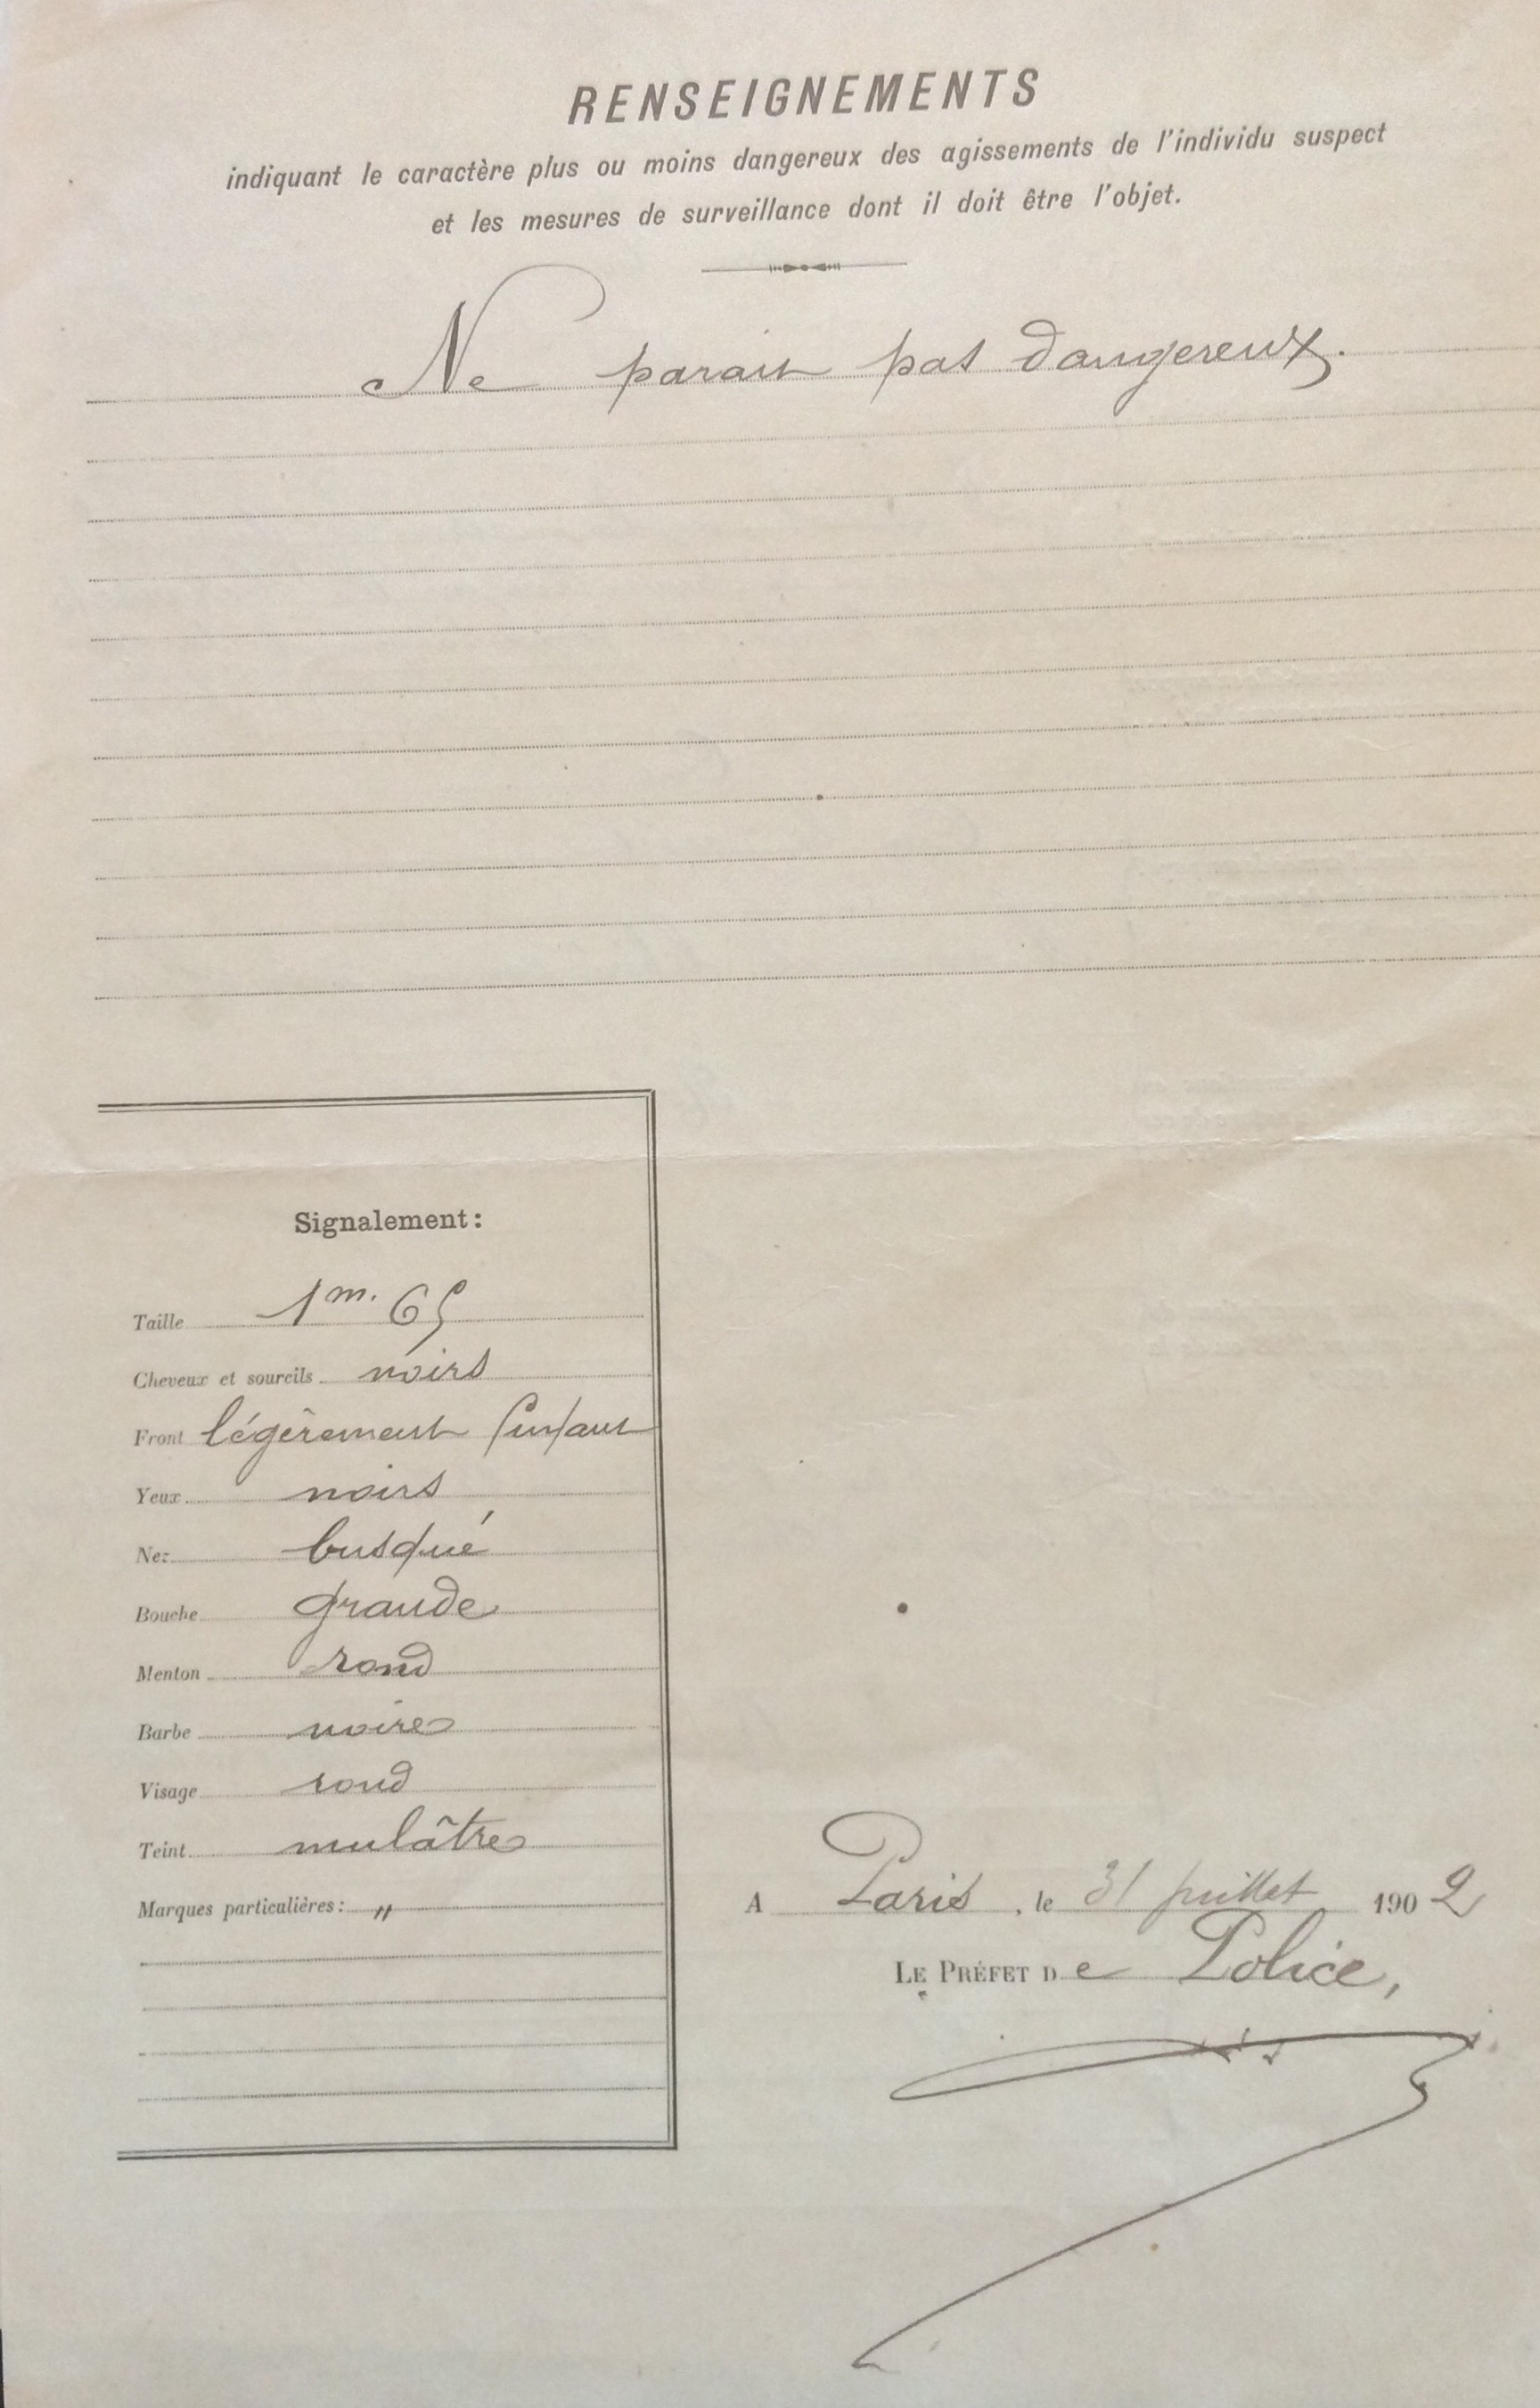 RENSEIGNEMENTS
indiquant le caractère plus ou moins dangereux des agissements de l'individu suspect
et les mesures de surveillance dont il doit être l'objet.
Ne parait pas dangereux.
Signalement:
Taille 1m. 65
Cheveux et sourcils noirs
Front légèrement fuyant
Yeux noirs
Nez busqué
Bouche grande
Menton rond
Barbe noire
Visage rond
Teint mulâtre
Marques particulières: "
A Paris, le 31 juillet 1902
LE PRÉFET De Police,